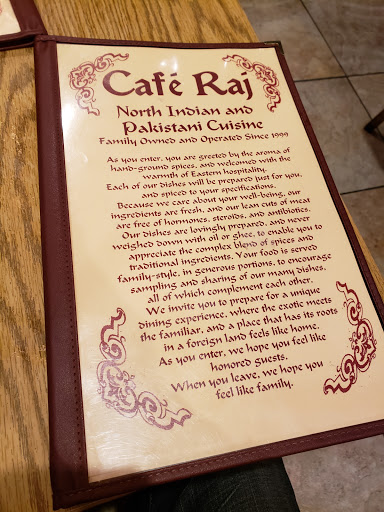 Café Raj
North Indian and
Pakistani Cuisine
Family Owned and Operated Since 1999
As you enter, you are greeted by the aroma of
hand-ground spices, and welcomed with the
warmth of Eastern hospitality.
Each of our dishes will be prepared just for you,
and spiced to your specifications.
Because we care about your well-being, our
ingredients are fresh, and our lean cuts of meat
are free of hormones, steroids, and antibiotics.
Our dishes are lovingly prepared, and never
weighed down with oil or ghee, to enable you to
appreciate the complex blend of spices and
traditional ingredients. Your food is served
family-style, in generous portions, to encourage
sampling and sharing of our many dishes,
all of which complement each other.
We invite you to prepare for a unique
dining experience, where the exotic meets
the familiar, and a place that has its roots
in a foreign land feels like home.
As you enter, we hope you feel like
honored guests.
When you leave, we hope you
feel like family.